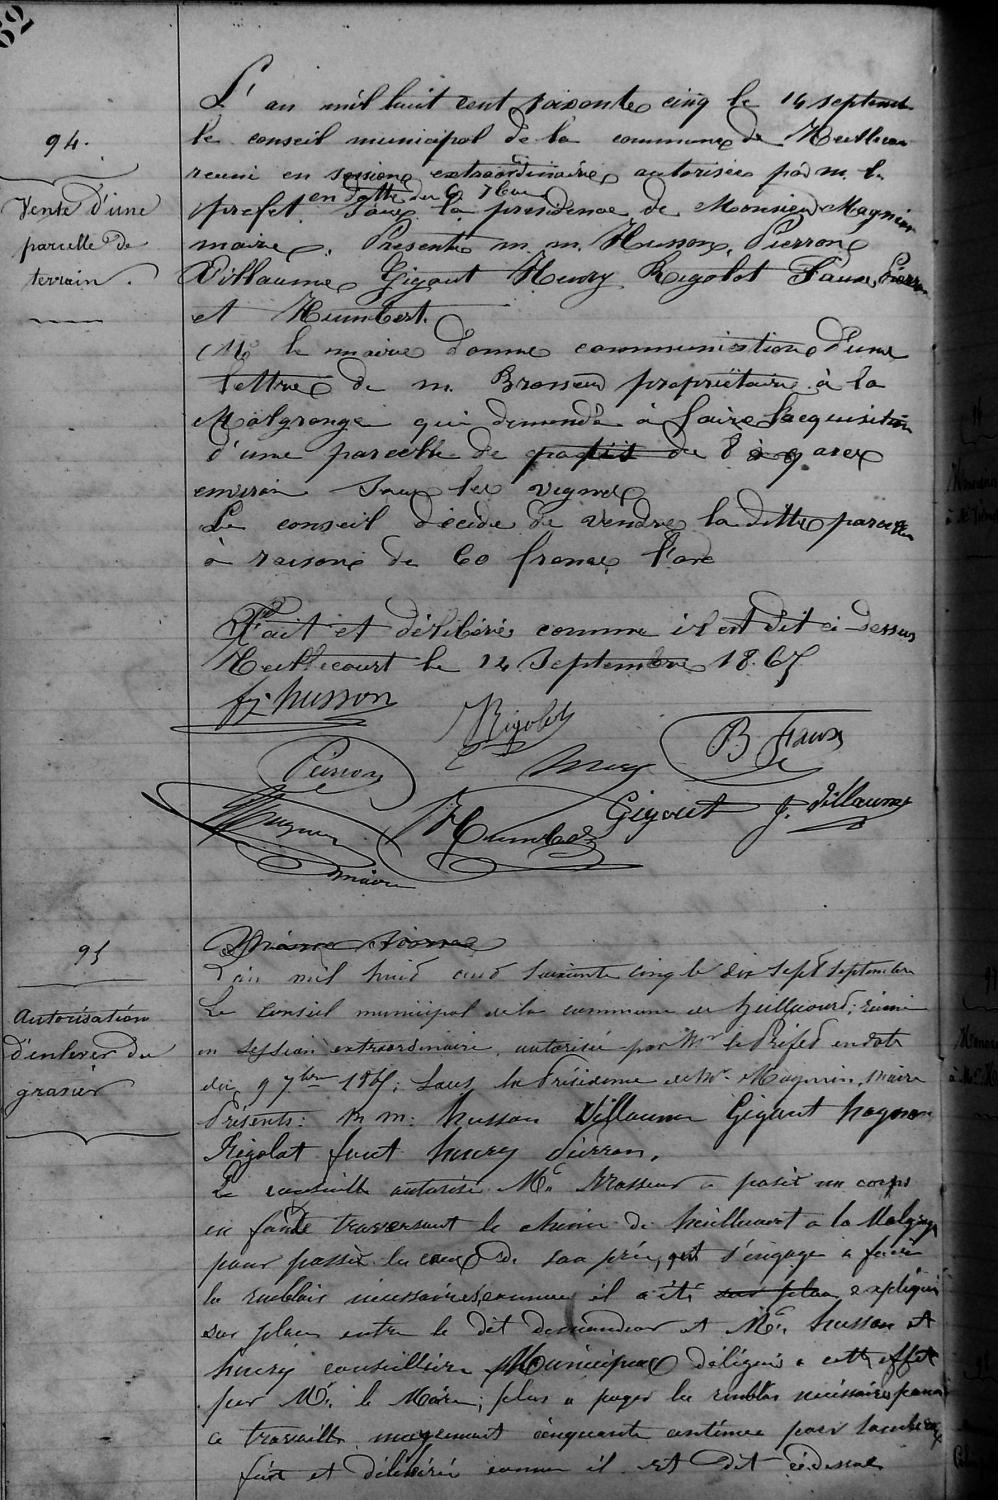 62
94.
Vente d'une
parcelle de
terrain.
L'an mil huit cent soixante cinq le 14 septembre
le conseil municipal de la commune de Heillecourt
reuni en session extraordinaire autorisée par m. le
préfet en datte du 9 7bre sous la présidence de Monsieur Magnien
maire. Présents m. m. Husson, Pierron,
Villaume Gigout Henry Rigolot Faux,
et Humbert.
Mr le maire donne communication d'une
lettre de m. Brasseur propriétaire à la
Malgrange qui demande à faire l'acquisition
d'une parcelle de patis de 8 à 9 ares
environ sous les vignes
Le conseil décide de vendre la ditte parcelle
à raison de 60 francs l'are
Fait et délibéré comme il est dit ci dessus
Heillecourt le 14 Septembre 1865
husson
Rigolot
B Faux
Pierron
Henry
Gigout J. Villaume
Magnien Humbert
maire
95
Autorisation
d'enlever du
gravier
L'an mil huit cent soixante cinq le dix sept septembre
Le Conseil municipal de la commune de heillecourt, réuni
en session extraordinaire, autorisée par Mr le Préfet en date
du 9 7bre 1865; sous la Présidence de Mr. Magnien, Maire
Présents: M m: husson Villaume Gigout
Rigolot faut henry Pierron.
Le conseille autorise Mr. Brasseur a posér un corps
en fonte traversant le chemin de heillecourt a la Malgrange
pour passér les eaux de son pré, et s'engage a faire
les remblais nécessaires comme il a été sur plan expliqué
sur place entre le dit demandeur et Mr. husson et
henry conseillére Municipaux délégué a cette effet
par Mr. le Maire; plus a payer les remblais nécessaires pour
ce travaille moyennant cinquante centimes par tombereaux
fait et délibéré comme il est dit cidessus